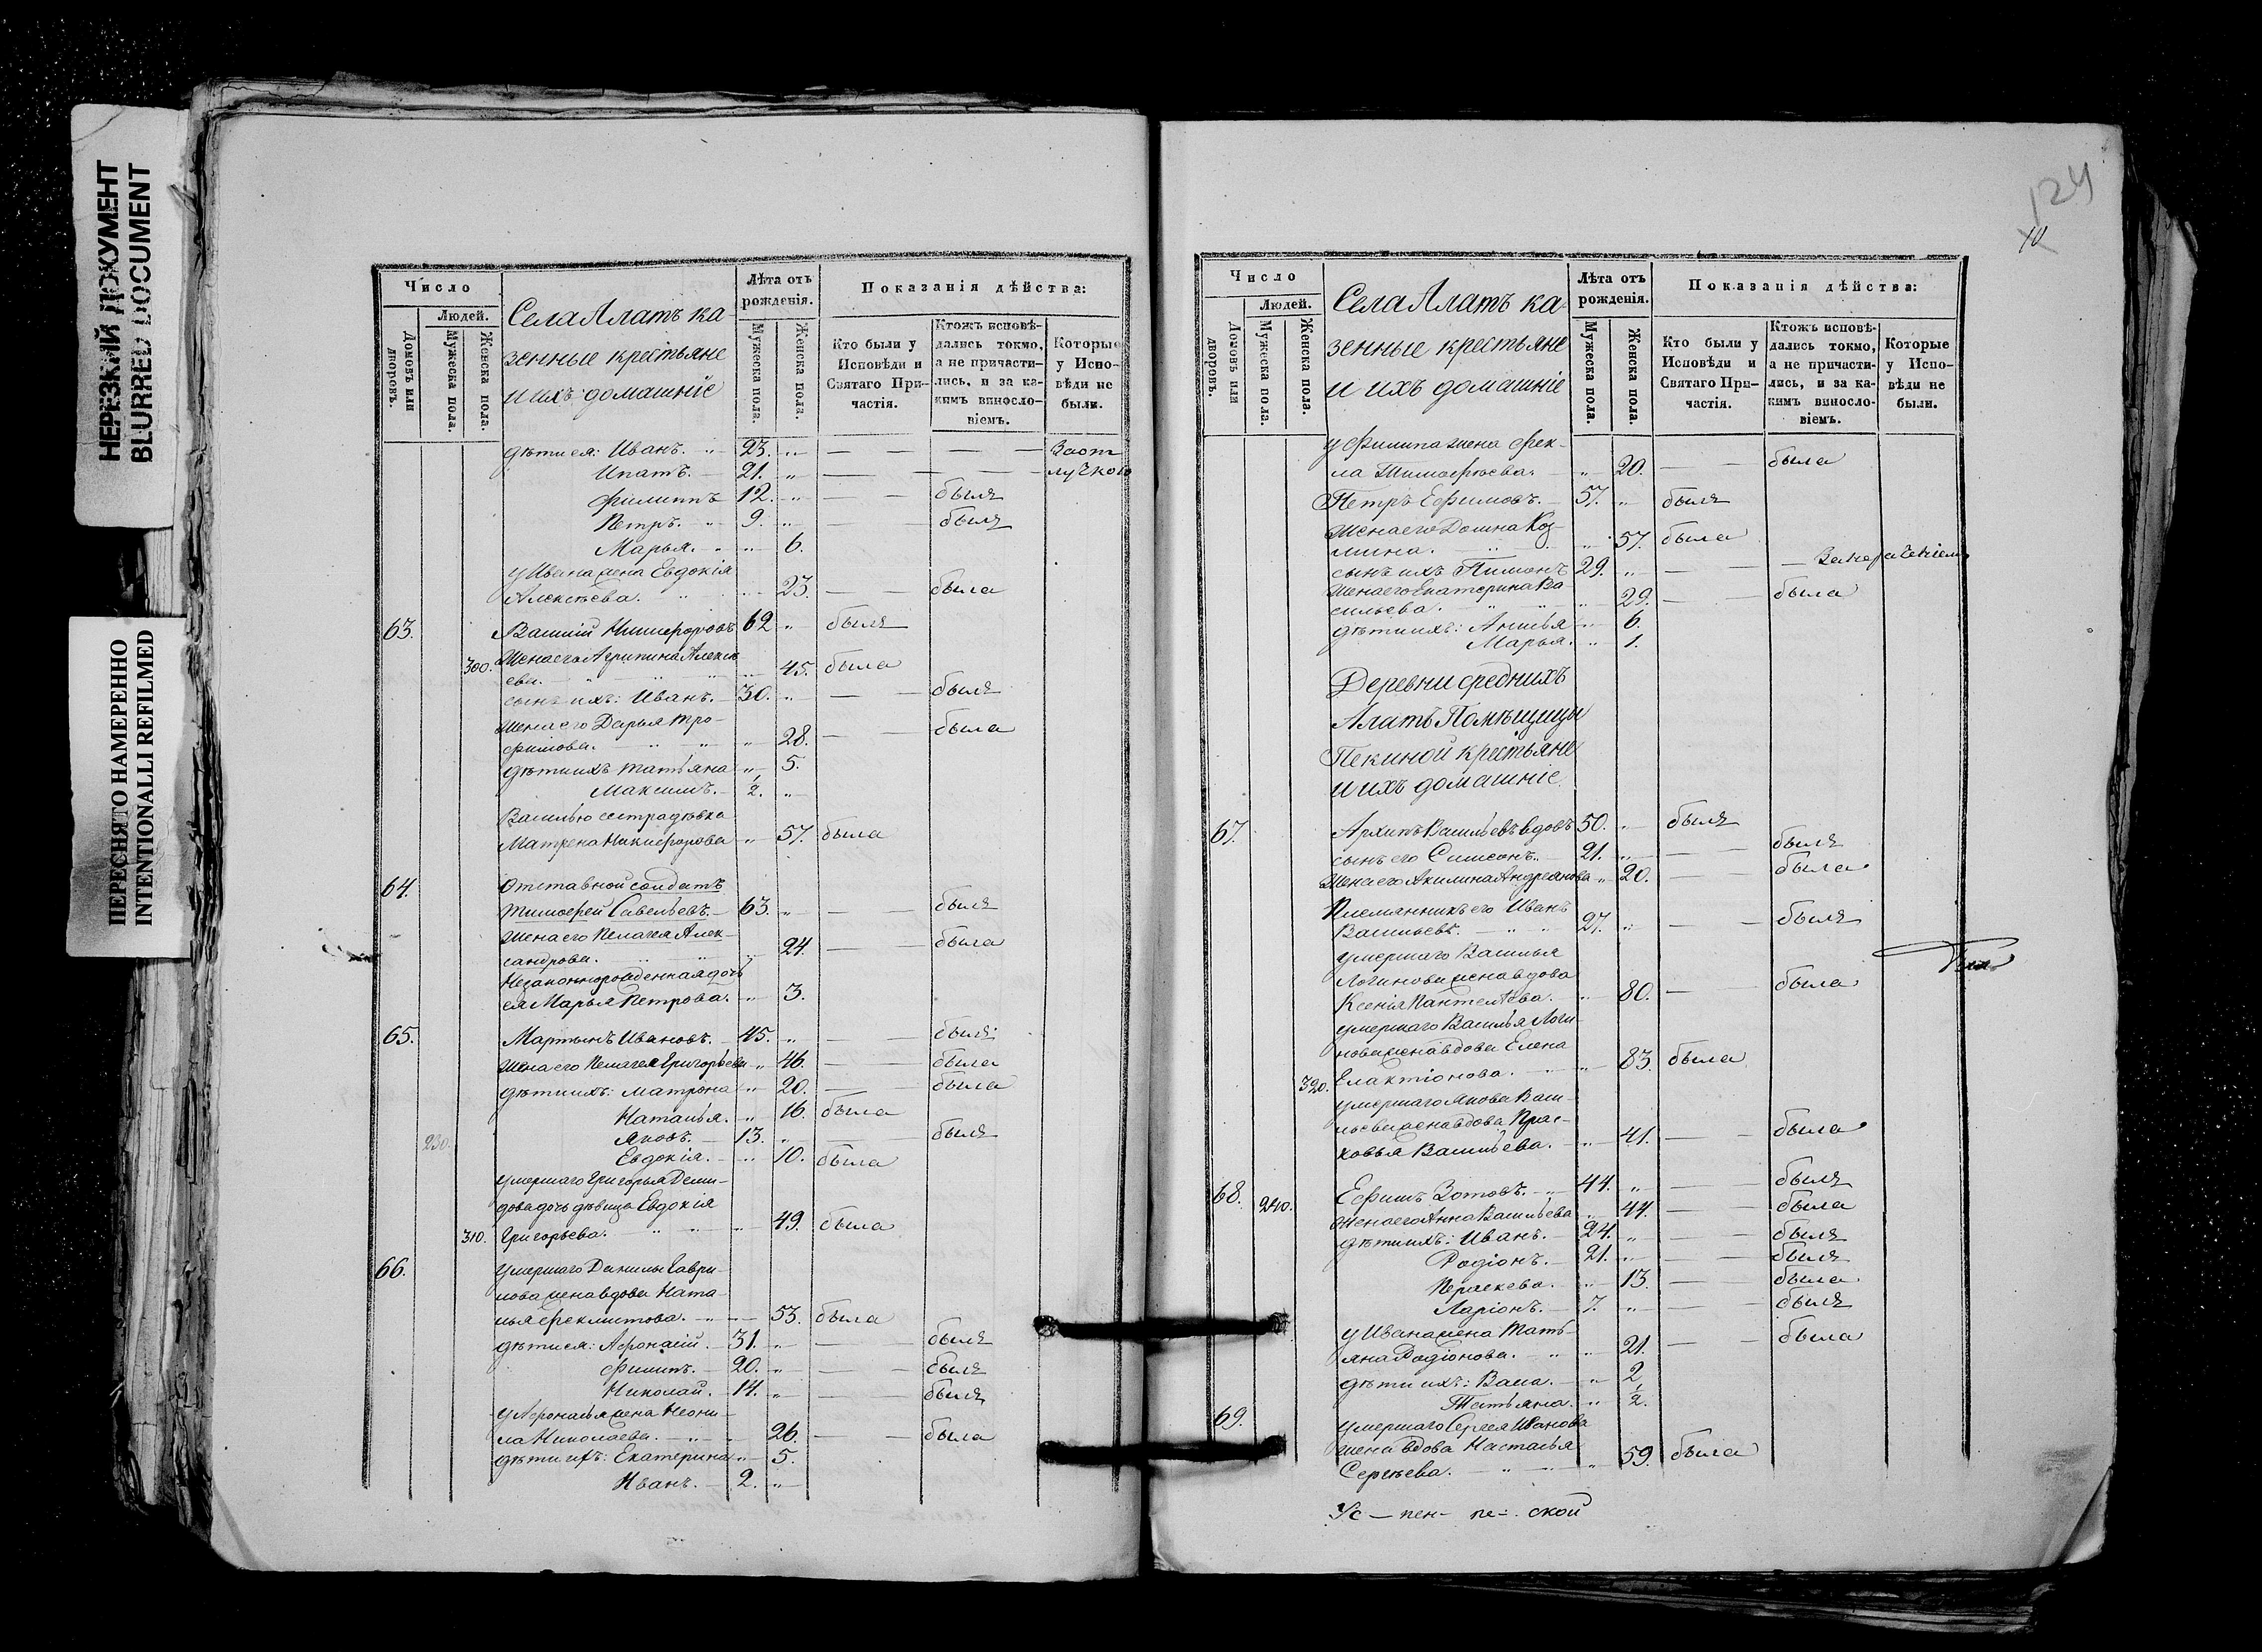 НЕРЕЗКИЙ ДОКУМЕНТ
BLURRED DOCUMENT
ПЕРЕСНЯТО НАМЕРЕННО
INTENTIONALLI REFILMED
Число
Людей.
Домовъ или дворовъ.
Мужеска пола.
Женска пола.
Села Алатъ ка-
зенные крестьяне
и ихъ домашніе
Лѣта отъ рожденія.
Мужеска пола.
Женска пола.
Показанія дѣйства:
Кто были у Исповѣди и Святаго Причастія.
Ктожъ исповѣдались токмо, а не причастились, и за какимъ винословіемъ.
Которые у Исповѣди не были.
дѣти ея: Иванъ. 23. За от
Ипатъ. 21. лучкою
Филиппъ 12. былъ
Петръ. 9. былъ
Марья. 6.
у Ивана жена Евдокія
Алексѣева. 23. была
63. Василій Никифоровъ 62 былъ
300. Жена его Агрипина Алексѣ
ева. 45. была
сынъ ихъ: Иванъ. 30. былъ
Жена его Дарья Тро-
фимова. 28. была
дѣти ихъ Татьяна 5.
Максимъ. 1/2.
Василью сестра дѣвка
Матрена Никифорова 57. была
64. Отставной солдатъ
Тимофей Савельевъ. 63. былъ
Жена его Пелагея Алек-
сандрова. 24. была
Незаконнорожденная дочь
ея Марья Петрова. 3.
65. Мартынъ Ивановъ. 45. былъ
Жена его Пелагея Григорьева 46. была
дѣти ихъ: Матрона 20. была
Наталья. 16. была
230. Яковъ. 13. былъ
Евдокія. 10. была
умершаго Григорья Деми-
дова дочь дѣвица Евдокія
310. Григорьева. 49. была
66. умершаго Данилы Гаври-
лова жена вдова Ната-
лья Феклистова. 53. была
дѣти ея: Афонасій. 31. былъ
Филипъ. 20. былъ
Николай. 14. былъ
у Афонасья жена Неони-
ла Николаева. 26. была
дѣти ихъ: Екатерина 5.
Иванъ. 2.
124
10
Число
Людей.
Домовъ или дворовъ.
Мужеска пола.
Женска пола.
Села Алатъ ка-
зенные крестьяне
и ихъ домашніе
Лѣта отъ рожденія.
Мужеска пола.
Женска пола.
Показанія дѣйства:
Кто были у Исповѣди и Святаго Причастія.
Ктожъ исповѣдались токмо, а не причастились, и за какимъ винословіемъ.
Которые у Исповѣди не были.
у Филипа жена Фек-
ла Тимофеева. 20. была
Петръ Ефимовъ. 57. былъ
Жена его Домна Коз-
мина. 57. была
сынъ ихъ Пимонъ 29. За нераченіемъ
Жена его Екатерина Ва
сильева. 29. была
дѣти ихъ: Анисья 6.
Марья. 1.
Деревни среднихъ
Алатъ Помѣщицы
Пекиной крестьяне
и ихъ домашніе.
67. Архипъ Васильевъ вдовъ 50. былъ
сынъ его Симеонъ. 21. былъ
Жена его Акилина Андреянова 20. была
Племянникъ его Иванъ
Васильевъ. 27. былъ
умершаго Василья
Логинова жена вдова
Ксенія Пантелѣева. 80. была
умершаго Василья Логи-
нова жена вдова Елена
320. Елактіонова. 83. была
умершаго Якова Васи-
льева жена вдова Прас-
ковья Васильева. 41. была
68. 240. Ефимъ Зотовъ. 44. былъ
Жена его Анна Васильева 44. была
дѣти ихъ: Иванъ. 24. былъ
Родіонъ. 21. былъ
Параскева. 13. была
Ларіонъ. 7. былъ
у Ивана жена Тать-
яна Родіонова. 21. была
дѣти ихъ: Васа. 2
Татьяна. 1/2.
69. умершаго Сергея Иванова
жена вдова Настасья
Сергѣева. 59. была
Ус- пен- ской